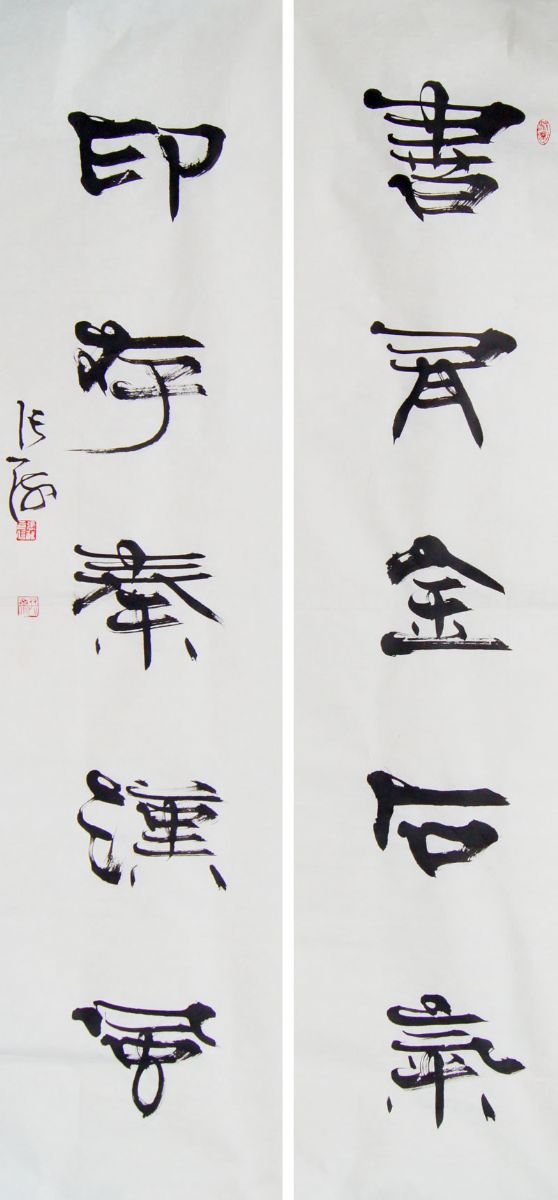 書有金石氣
印存秦漢風